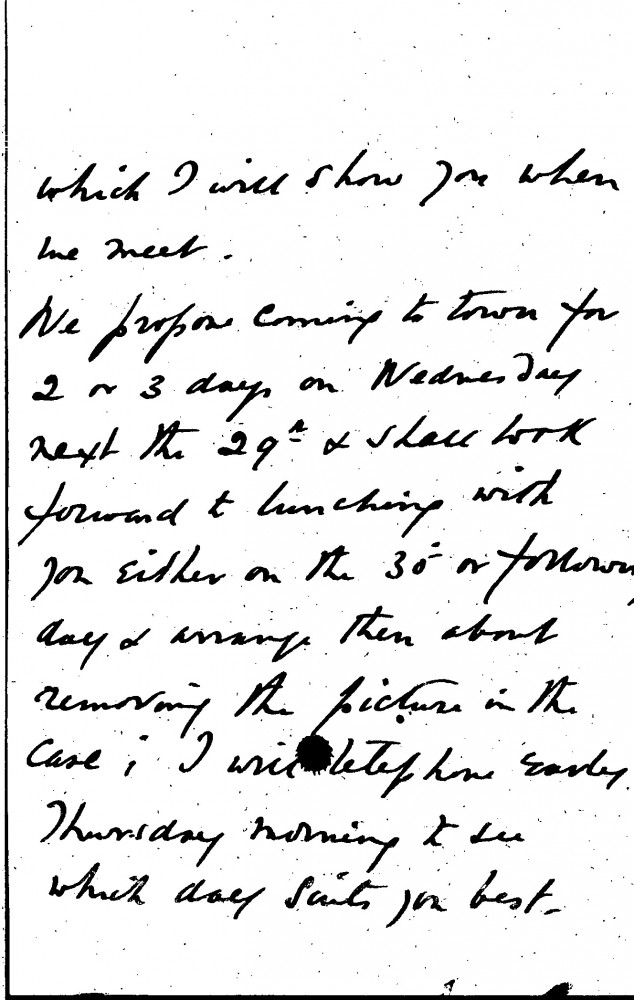 which I will show you when
we meet.
We propose coming to town for
2 or 3 days on Wednesday
next the 29th & shall look
forward to lunching with
you either on the 30th or following
day & arrange then about
removing the picture in the
case; I will telephone early
Thursday morning to see
which day suits you best.